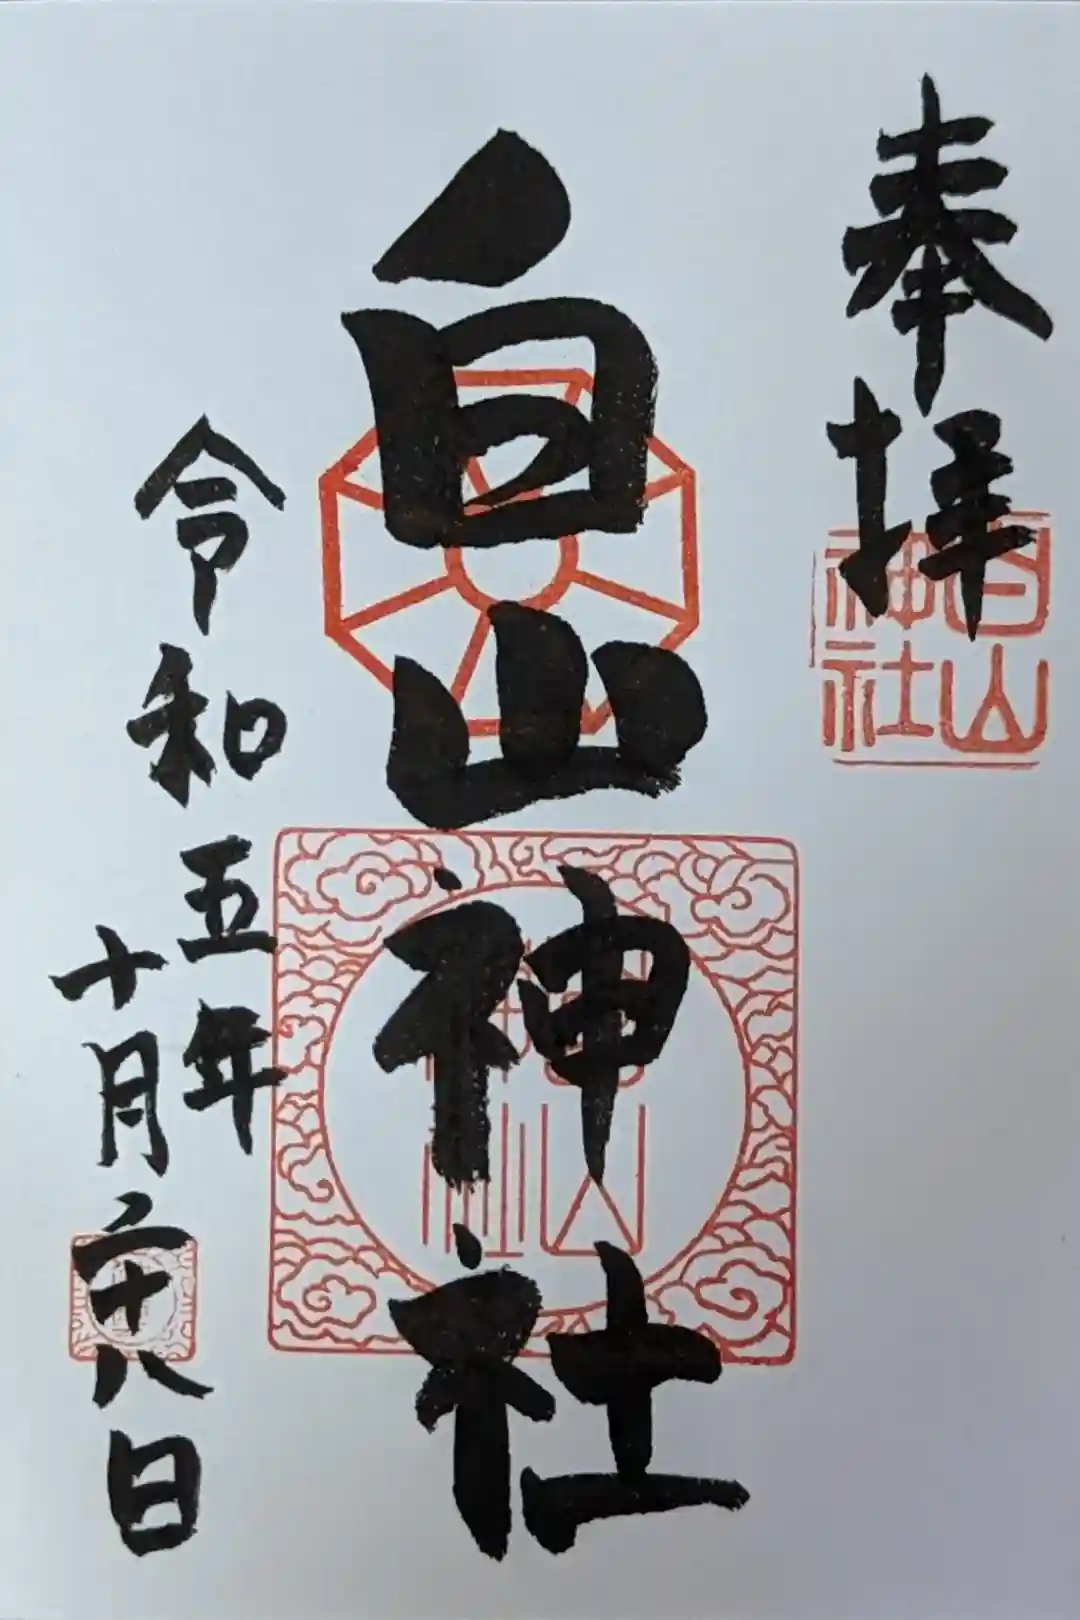 奉拝
白山神社
白山神社
令和五年
十月二十八日